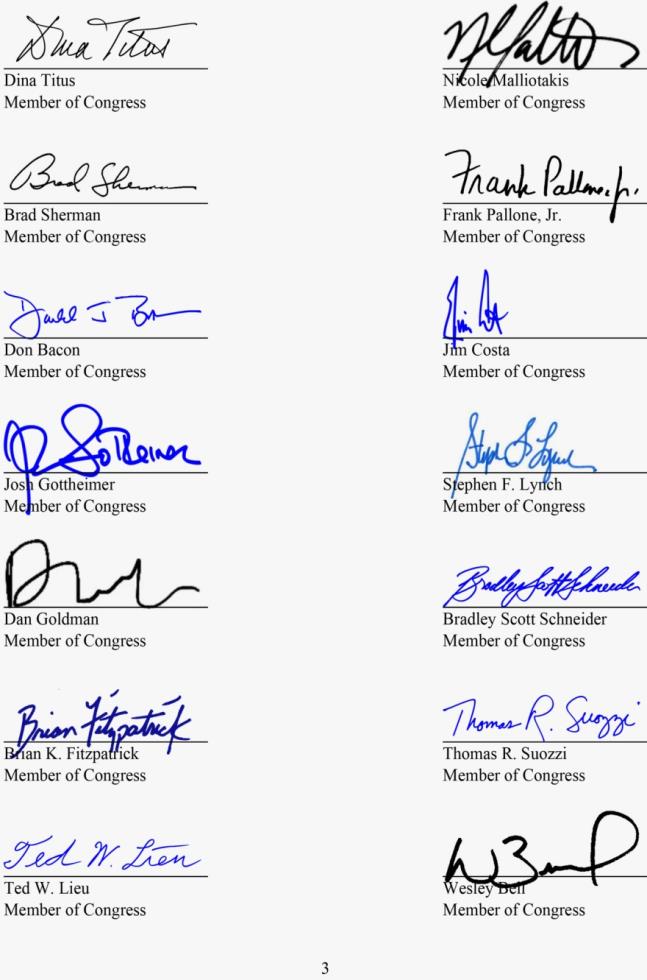 Dina Titus
Dina Titus
Member of Congress
Nicole Malliotakis
Member of Congress
Brad Sherman
Brad Sherman
Member of Congress
Frank Pallone, Jr.
Frank Pallone, Jr.
Member of Congress
Don Bacon
Member of Congress
Jim Costa
Jim Costa
Member of Congress
Gottheimer
Josh Gottheimer
Member of Congress
Stephen F. Lynch
Member of Congress
Dan Goldman
Member of Congress
Bradley Scott Schneider
Bradley Scott Schneider
Member of Congress
Brian Fitzpatrick
Brian K. Fitzpatrick
Member of Congress
Thomas R. Suozzi
Thomas R. Suozzi
Member of Congress
Ted W. Lieu
Ted W. Lieu
Member of Congress
Wesley Bell
Member of Congress
3